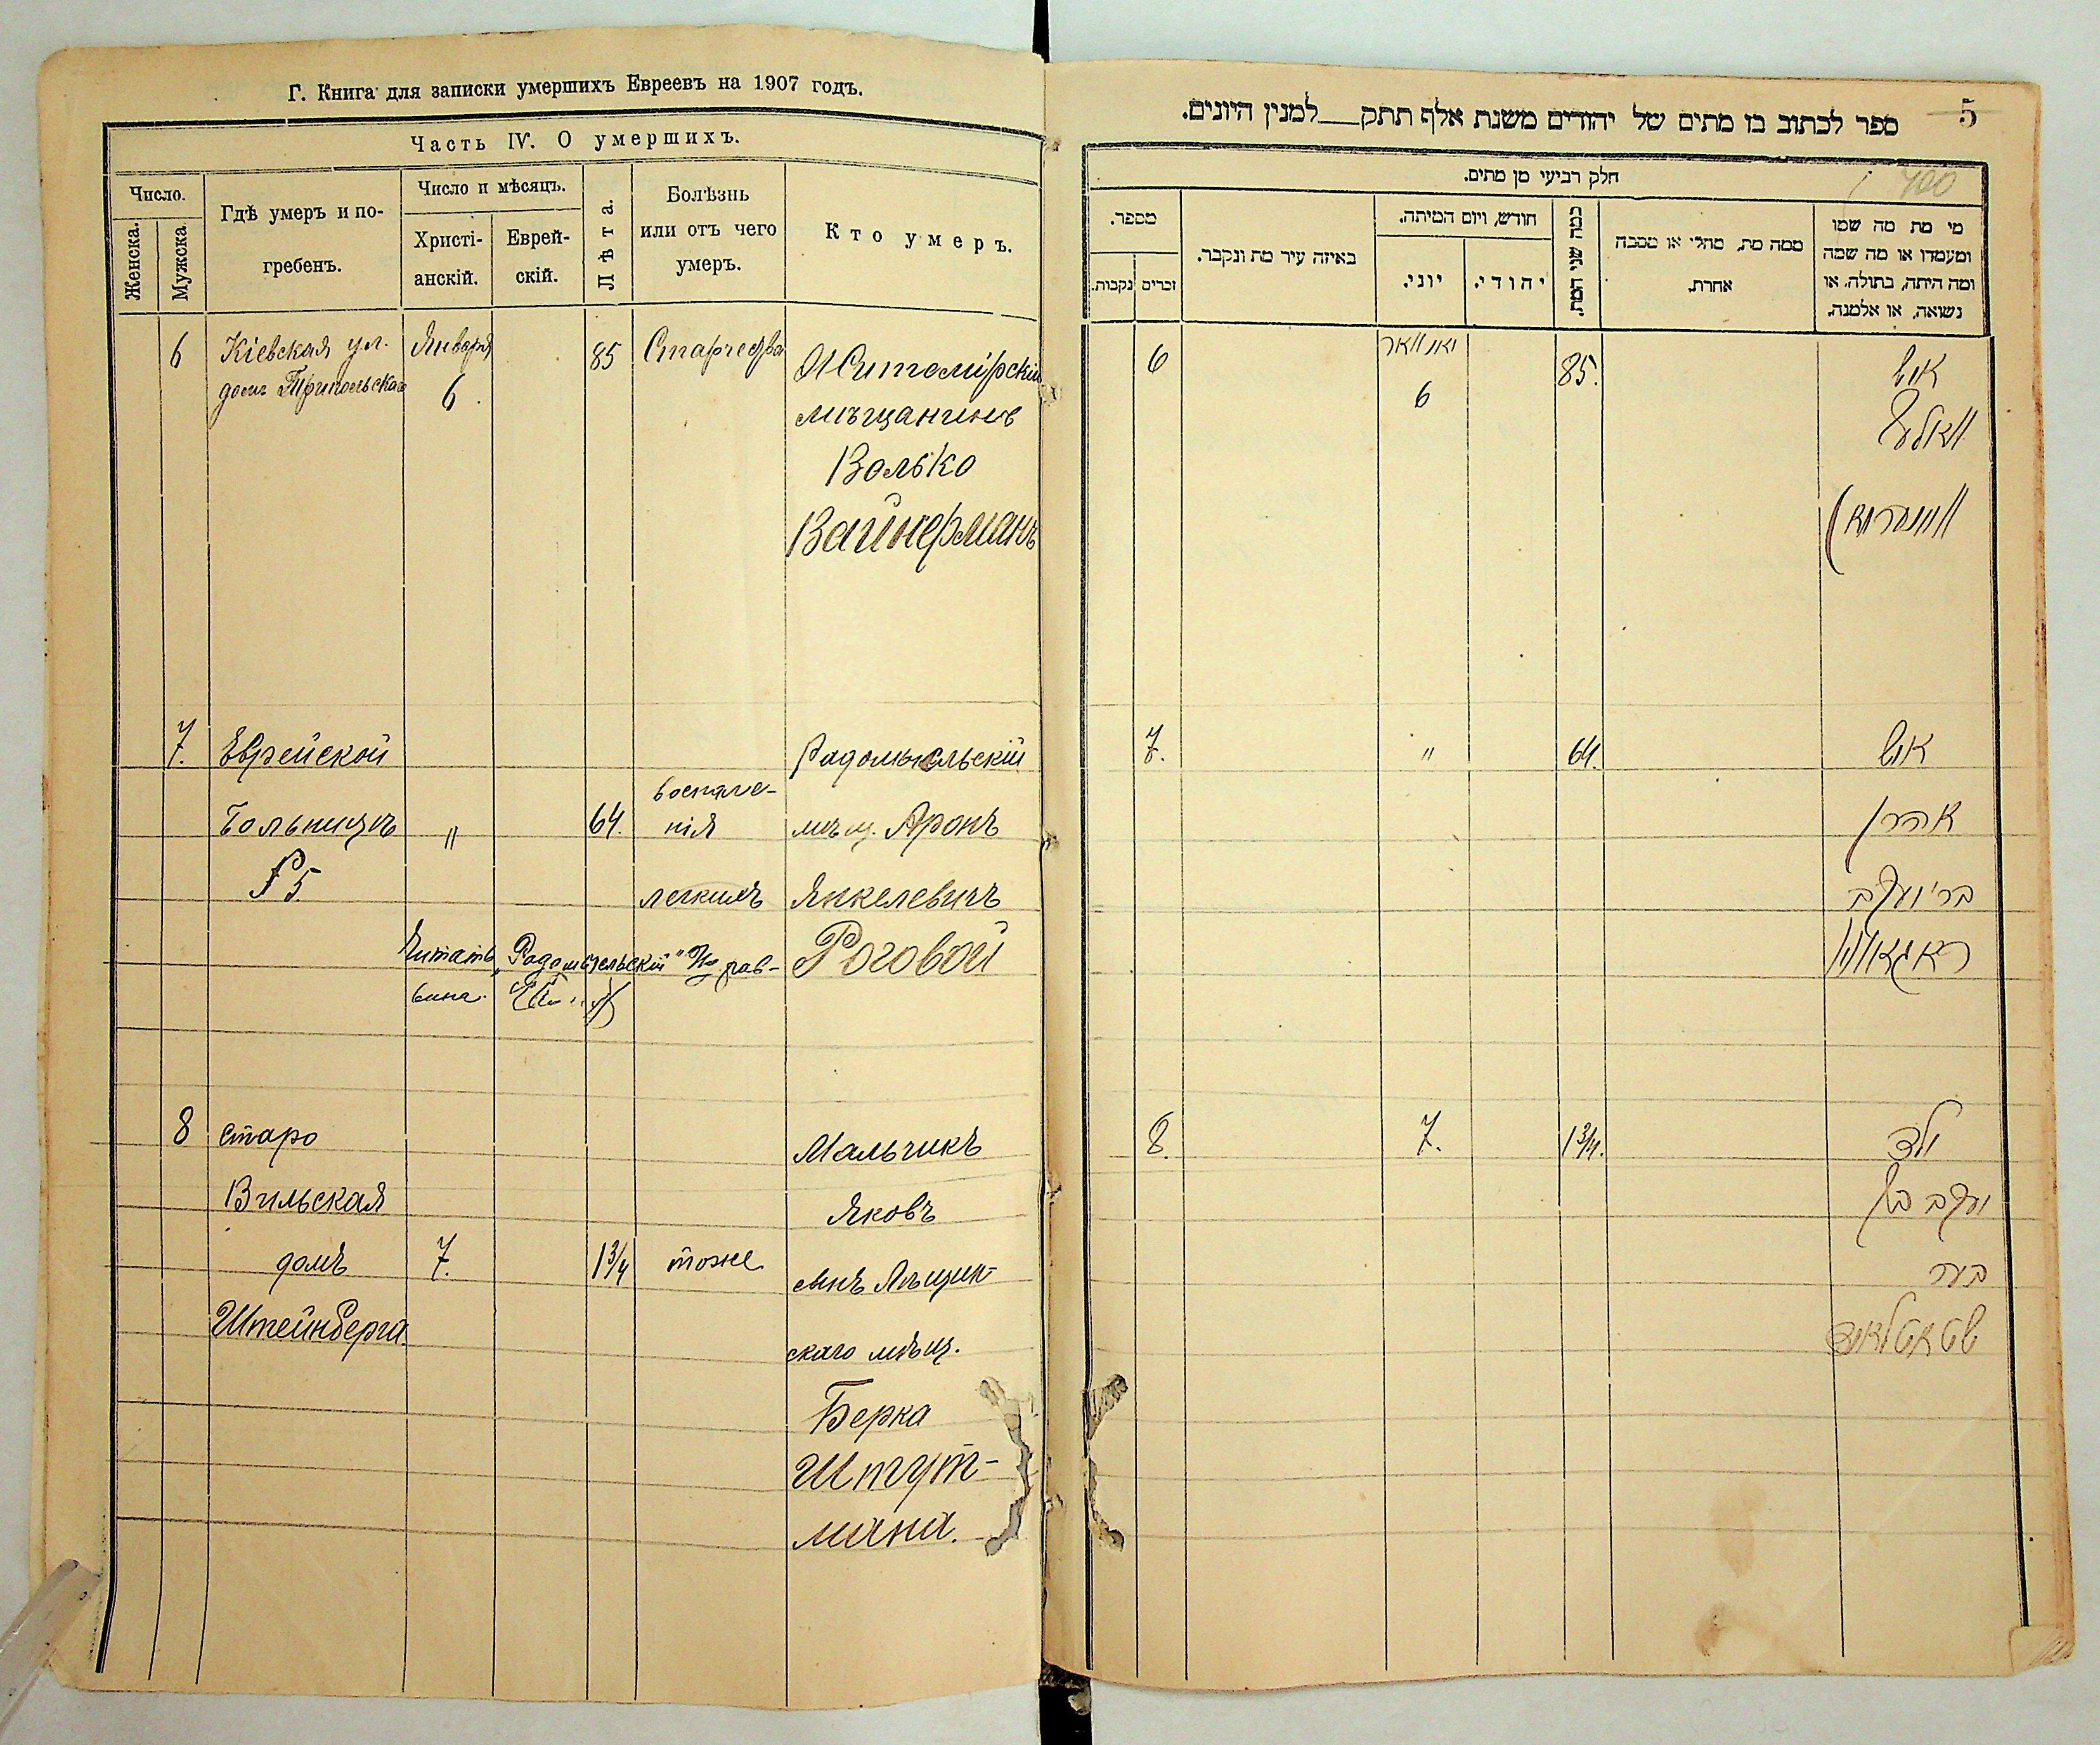 Г. Книга для записки умершихъ Евреевъ на 1907 годъ.
Часть IV. О умершихъ.
Число.
Женска.
Мужска.
Гдѣ умеръ и по-
гребенъ.
Число и мѣсяцъ.
Христі-
анскій.
Еврей-
скій.
Лѣта.
Болѣзнь
или отъ чего
умеръ.
Кто умеръ.
6
Кіевская ул.
домъ Трипольскаго
Января
6
85
Старчества
Житомірскій
мѣщанинъ
Волько
Вайнерманъ
7.
Еврейской
Больницѣ
"
64.
воспале-
нія
легкихъ
Радомысльскій
мѣщ. Аронъ
Янкелевичъ
Роговой
Читать „Радомысльскій"
8
Старо
Вильская
домъ
Штейнберга
7.
1 3/4
тоже
Мальчикъ
Яковъ
сынъ
скаго мѣщ.
Берка
Штут-
мана.
5
700
ספר לכתוב בו מתים של יהודים משנת אלף תתק__למנין היונים.
חלק רביעי מן מתים.
מספר.
זכרים
נקבות.
באיזה עיר מת ונקבר.
חודש, ויום המיתה.
יוני.
יהודי.
כמה שני המת.
ממה מת, מחלי או מסבה
אחרת.
מי מת מה שמו
ומעמדו או מה שמה
ומה היתה, בתולה, או
נשואה, או אלמנה.
6
יאנוואר
6
85.
איש
וואלף
וויינערמאן
7.
"
64.
איש
אהרן
בר' יעקב
ראגאוויי
8.
7.
1 3/4.
ילד
יעקב בן
בער